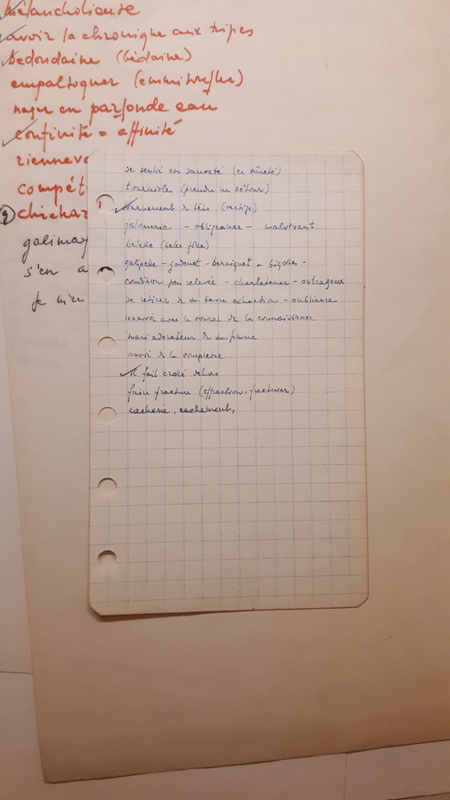 mélancolieuse
avoir la chronique aux tripes
bedondaine (bédaine)
empaltoquer (emmitoufler)
nager en parfonde eau
confinité = affinité
rienneva
compét
chichar
galima
s'en a
je m'en
se sentir en sauveté (en sûreté)
tournioles (prendre un détour)
tournement de tête (vertige)
galanerie - obligeance - malotvent
belette (belle fille)
galipette - godenot - berniquet - bigolles -
condition peu relevée - charlataner - outrageux
se retirer de son
avec le souci de la connaissance
mais adorateur de sa plume
avoir de la complexie
il fait croire
faire fracture (effraction, fracturer)
cacherie, cachement,